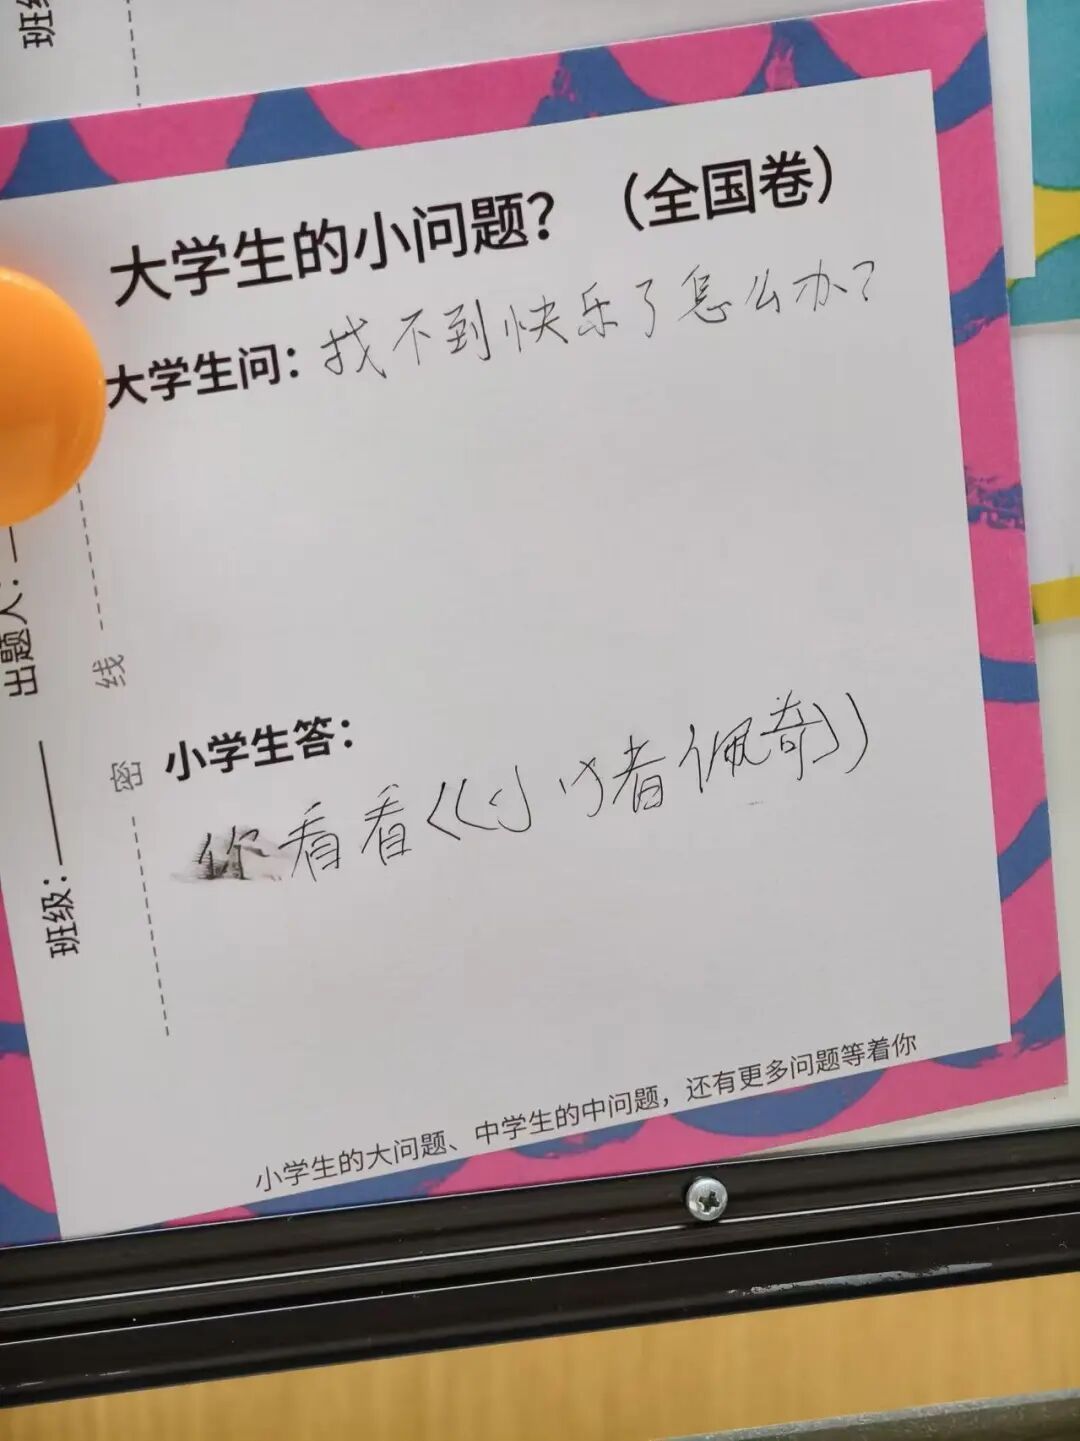 班级
大学生的小问题？（全国卷）
大学生问：找不到快乐了怎么办？
出题人：
线
密
小学生答：
你看看《小猪佩奇》
班级：
小学生的大问题、中学生的中问题，还有更多问题等着你